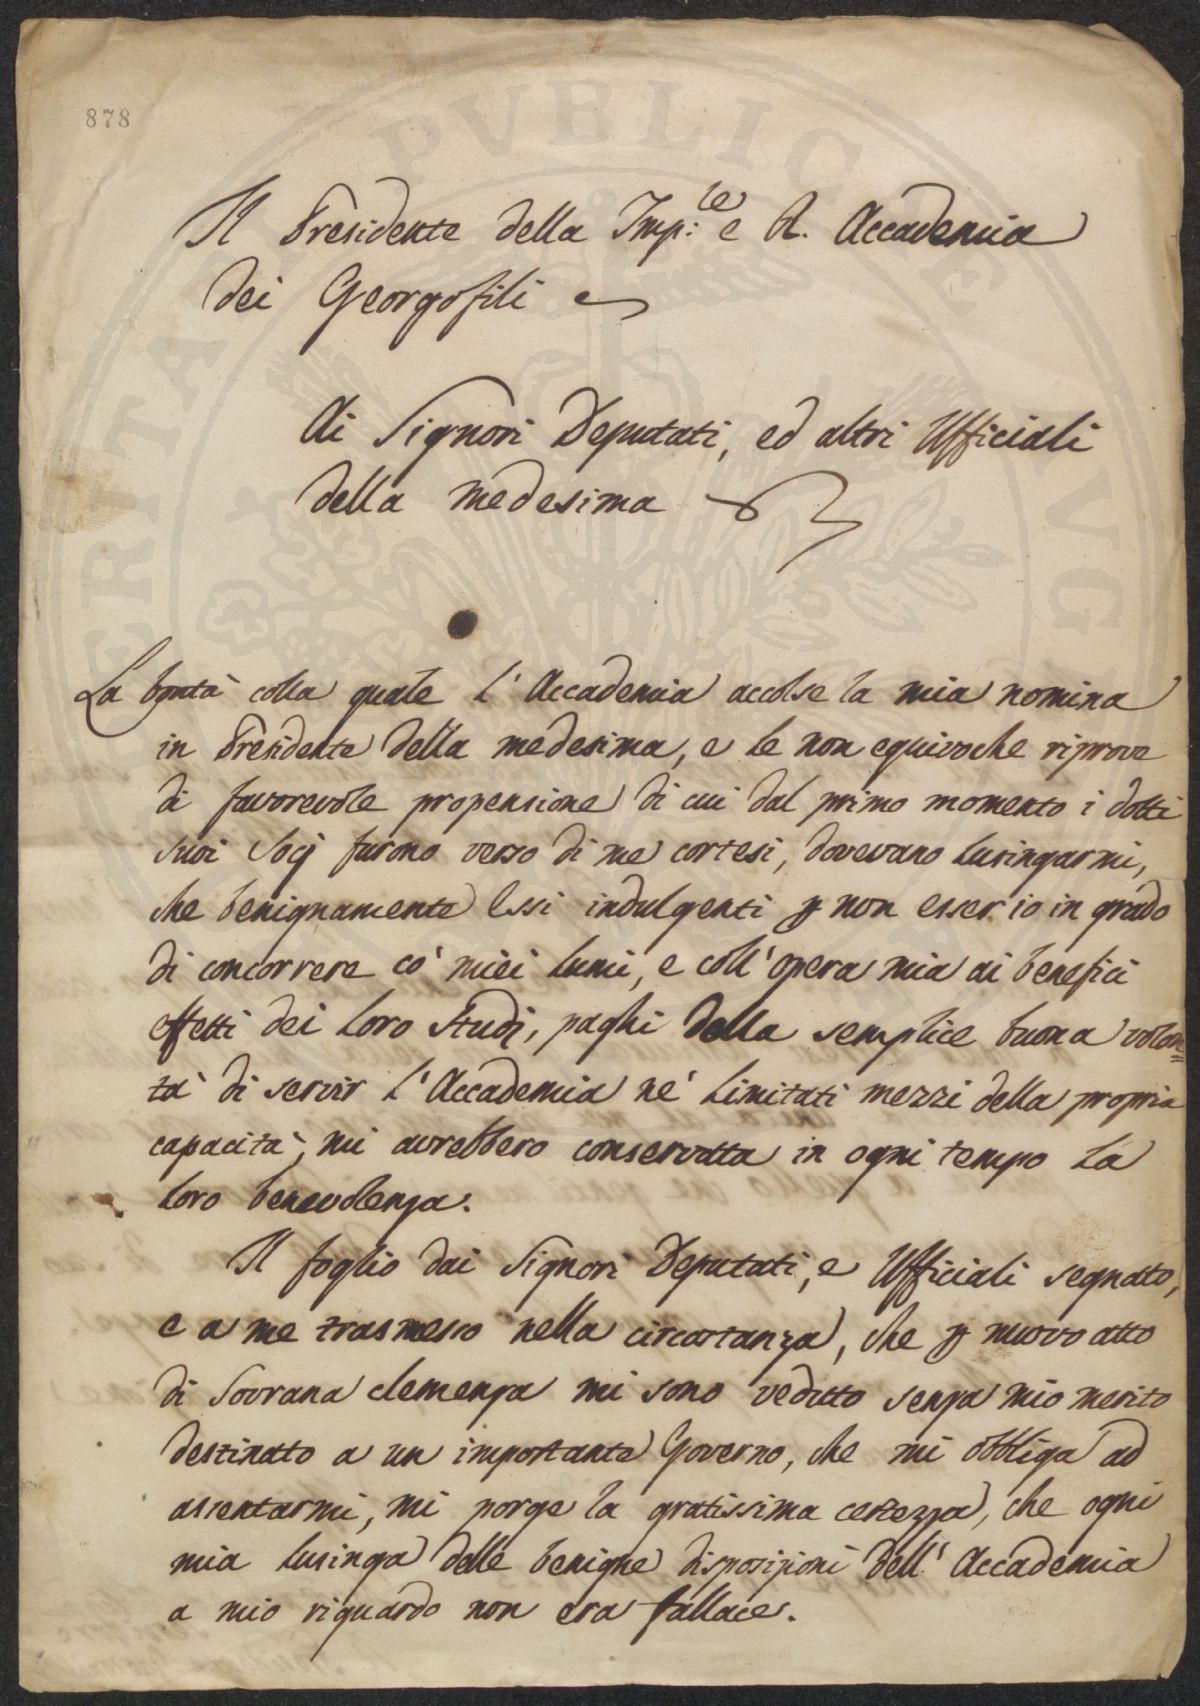 878
Il Presidente della Imp:le e R. Accademia
dei Georgofili
Ai Signori Deputati, ed altri Ufficiali
della medesima
La bontà colla quale l'Accademia accolse la mia nomina
in Presidente della medesima, e le non equivoche riprove
di favorevole propensione di cui dal primo momento i dotti
suoi Socj furono verso di me cortesi, dovevano lusingarmi,
che benignamente Essi indulgenti p non esser io in grado
di concorrere co' miei lumi, e coll'opera mia ai benefici
effetti dei loro Studj, paghi della semplice buona volon=
tà di servir l'Accademia ne' limitati mezzi della propria
capacità, mi avrebbero conservata in ogni tempo la
loro benevolenza.
Il foglio dai Signori Deputati, e Ufficiali segnato,
e a me trasmesso nella circostanza, che p nuovo atto
di Sovrana clemenza mi sono veduto senza mio merito
destinato a un importante Governo, che mi obbliga ad
assentarmi, mi porge la gratissima certezza, che ogni
mia lusinga delle benigne disposizioni dell'Accademia
a mio riguardo non era fallace.
PVBLICE